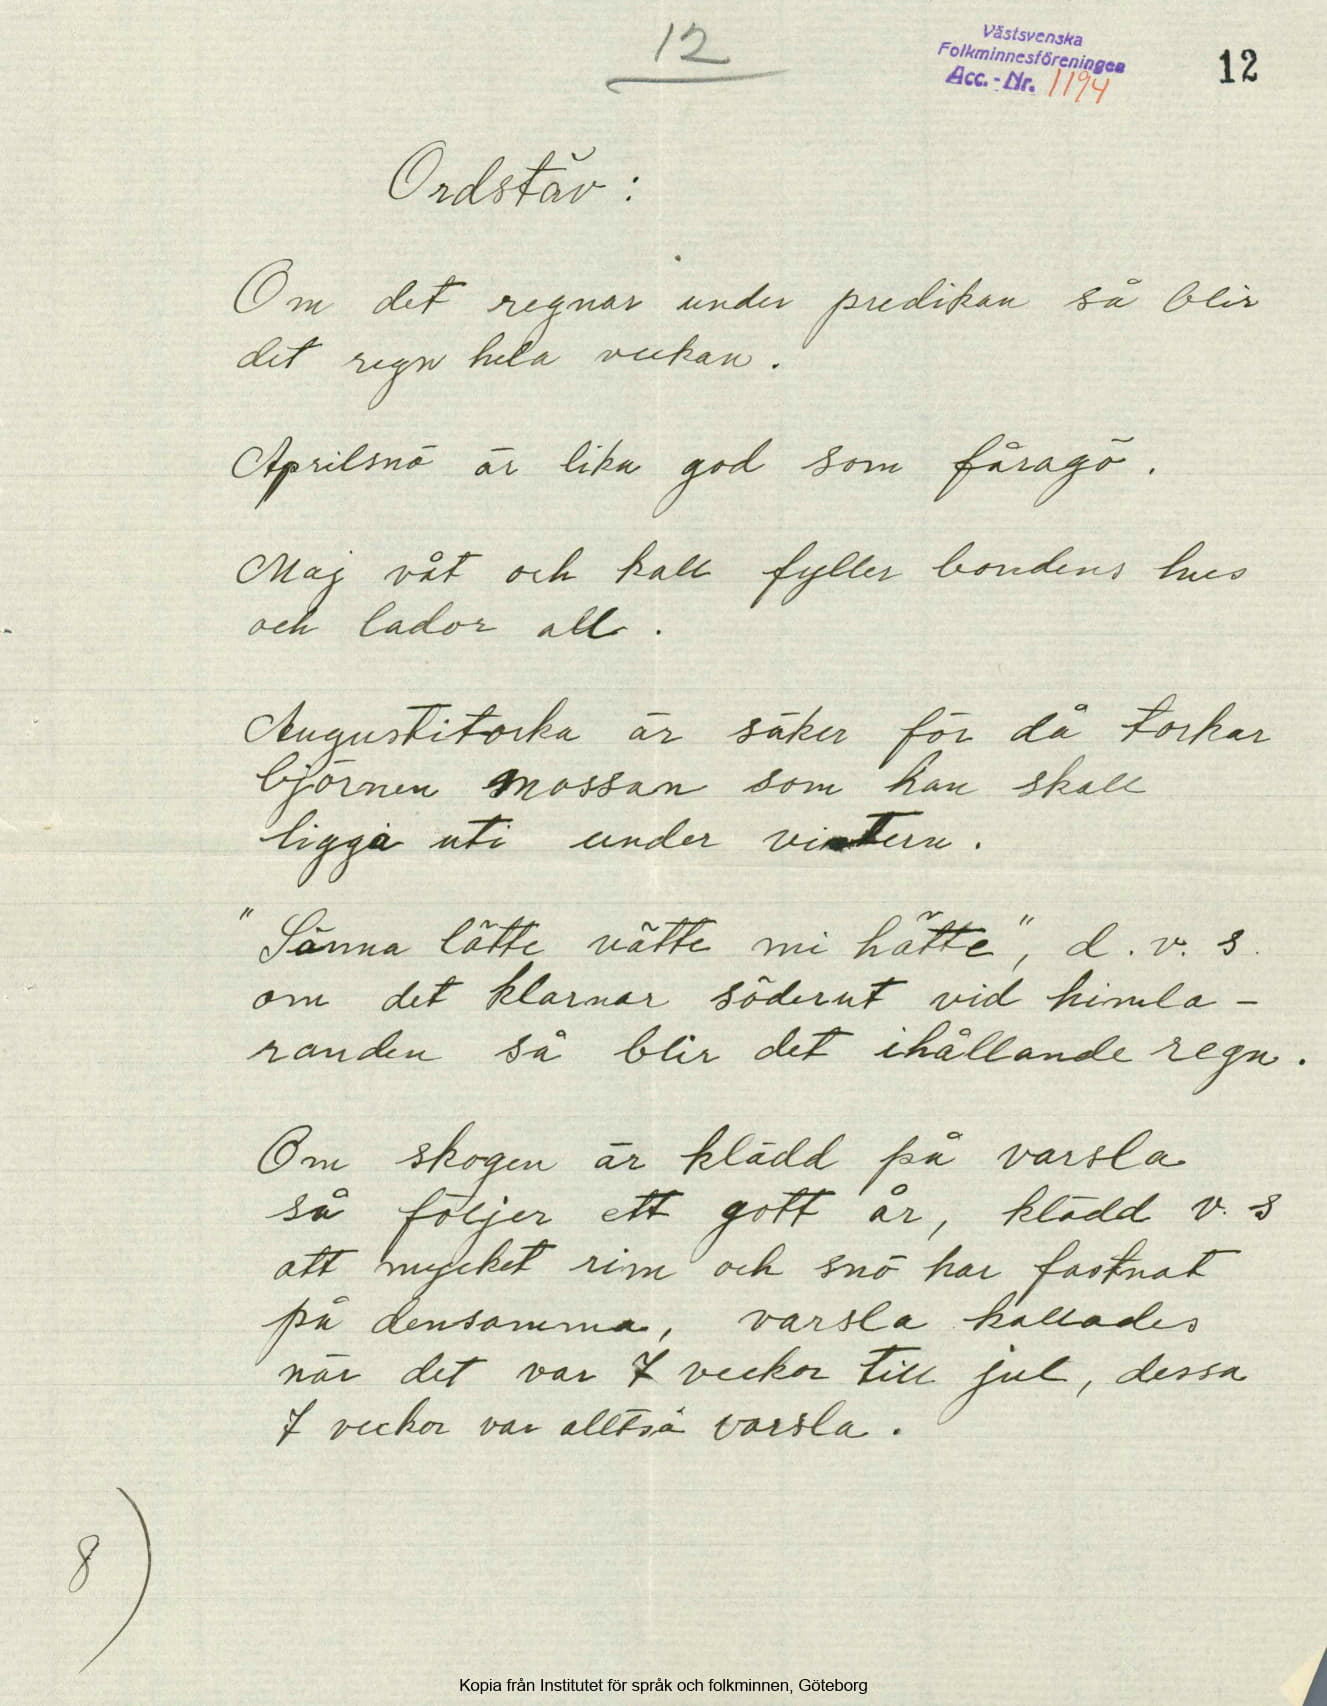 12
Västsvenska
Folkminnesföreningen
Acc.-Nr. 1194
12
Ordstäv:
Om det regnar under predikan så blir
det regn hela veckan.
Aprilsnö är lika god som fåragö.
Maj våt och kall fyller bondens hus
och lador all.
Augustitorka är säker för då torkar
björnen mossan som han skall
ligga uti under vintern.
"Sänna lätte vätte mi hätte", d.v.s.
om det klarnar söderut vid himla-
randen så blir det ihållande regn.
Om skogen är klädd på varsla
så följer ett gott år, klädd v.s
att mycket rim och snö har fastnat
på densamma, varsla kallades
när det var 7 veckor till jul, dessa
7 veckor var alltså varsla.
8)
Kopia från Institutet för språk och folkminnen, Göteborg